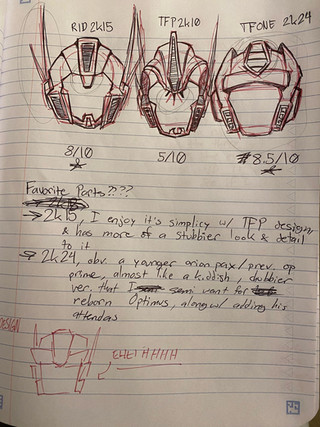 RID2k15 TFP2k10 TFONE 2k24
8/10 5/10 8.5/10
Favorite Parts????
→2k15, I enjoy it's simplicy w/ TFP designs
& has more of a stubbier look & detail
to it
→2k24, obv. a younger orion pax/prev. op
prime, almost like a kiddish, chubbier
ver. that I semi want for
reborn Optimus, along w/ adding his
attendas
DESIGN
EHEHHHH